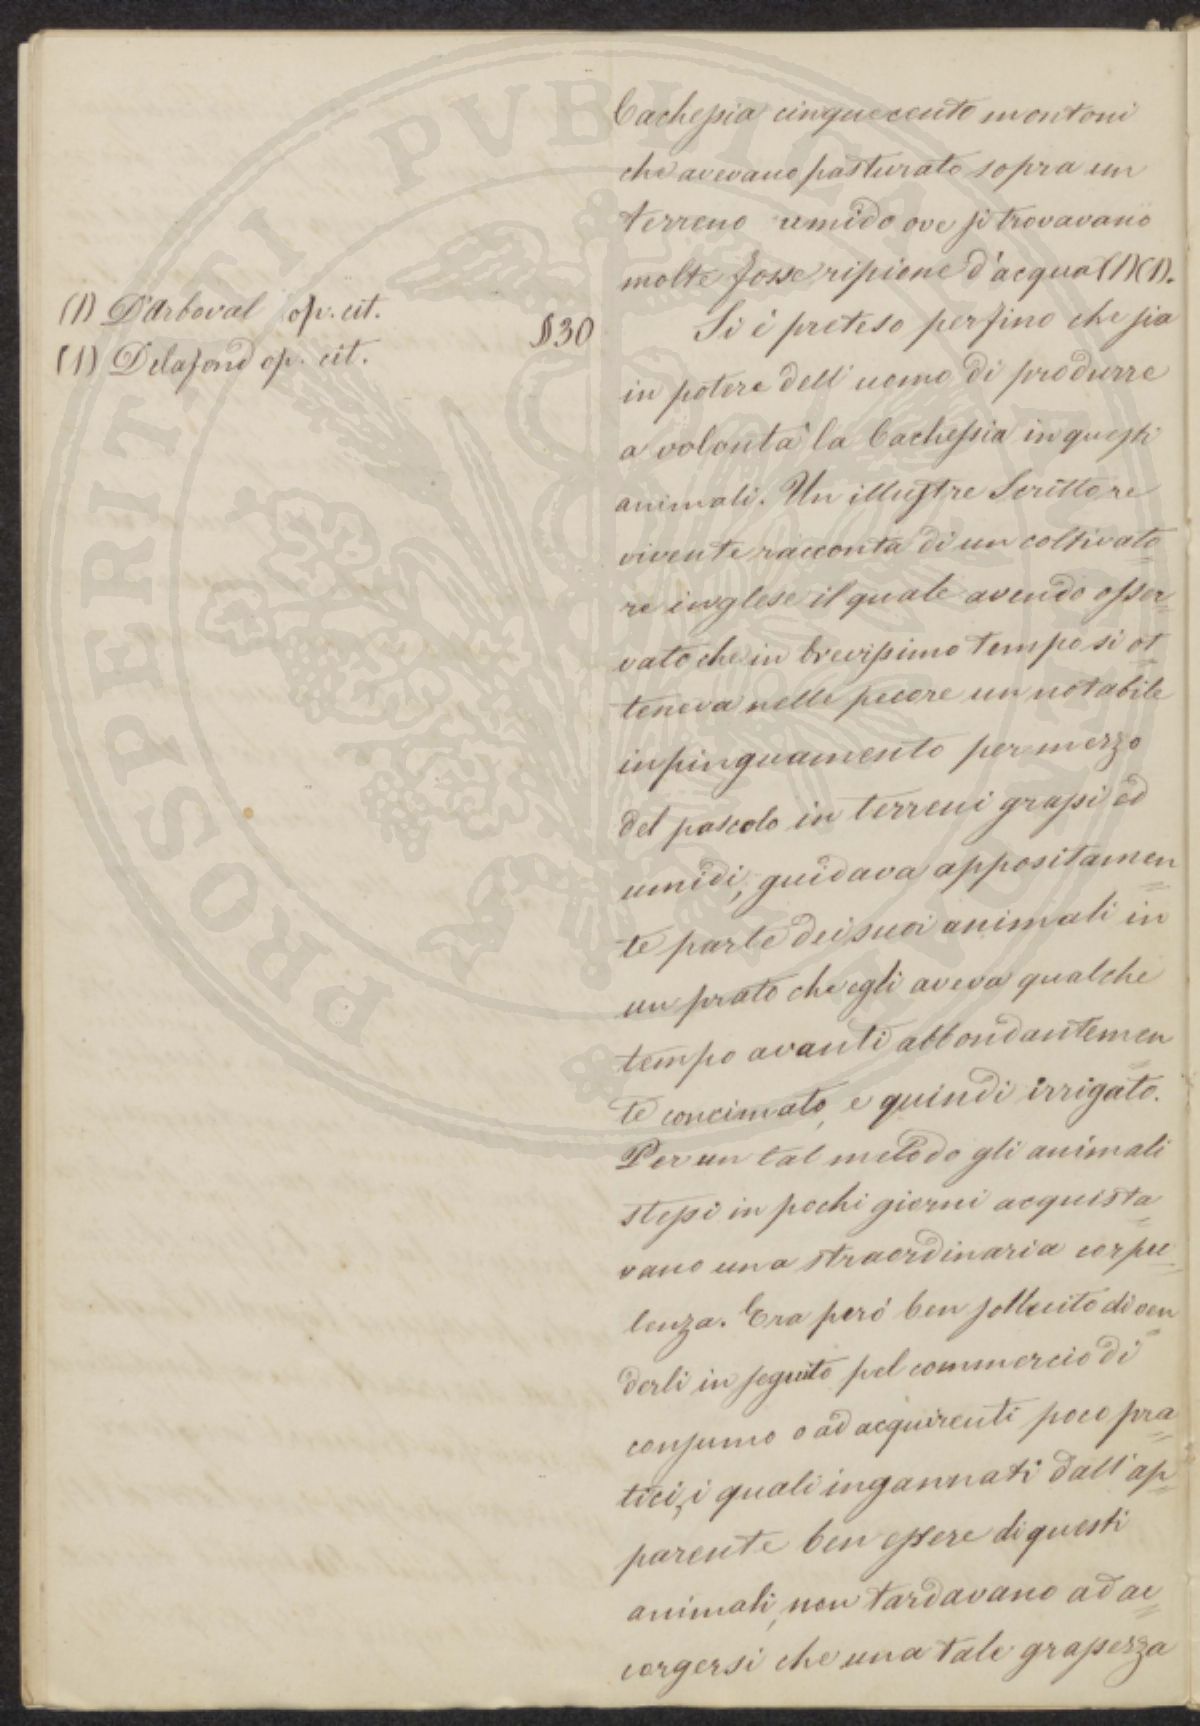 Cachessia cinquecento montoni
che avevano pasturato sopra un
terreno umido ove si trovavano
molte fosse ripiene d'acqua (1)(1).
(1) D'Arboval op. cit.
(1) Delafond op. cit.
§30
Si é preteso perfino che sia
in potere dell'uomo di produrre
a volontà la Cachessia in questi
animali. Un illustre Scrittore
vivente racconta di un coltivato
re inglese il quale avendo osser
vato che in brevissimo tempo si ot
teneva nelle pecore un notabile
inpinguamento per mezzo
del pascolo in terreni grassi ed
umidi, guidava appositamen
te parte dei suoi animali in
un prato che egli aveva qualche
tempo avanti abbondantemen
te concimato, e quindi irrigato.
Per un tal metodo gli animali
stessi in pochi giorni acquista
vano una straordinaria corpu
lenza. Era peró ben sollecito di ven
derli in seguito pel commercio di
consumo o ad acquirenti poco pra
tici, i quali ingannati dall'ap
parente ben essere di questi
animali, non tardavano ad ac
corgersi che una tale grassezza
PROSPERITATI PVBLICAE